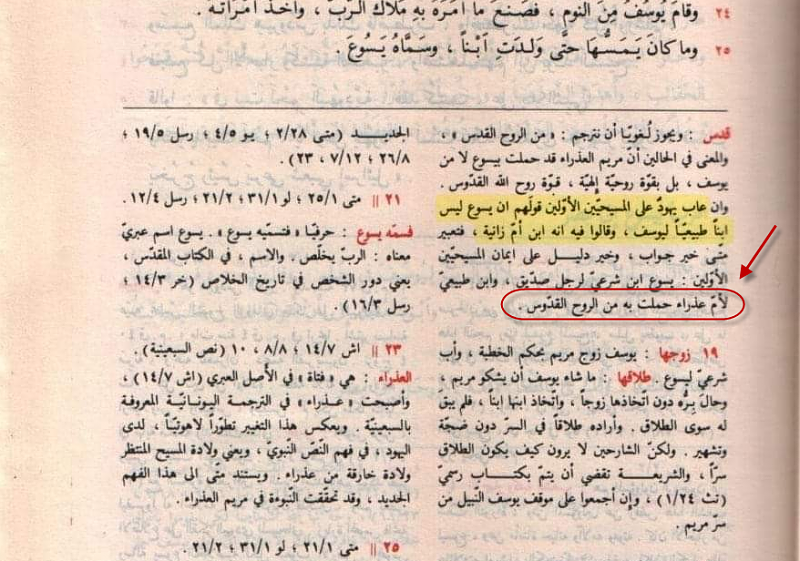 ٢٤ وقامَ يُوسُفُ مِنَ النوم ، فصَنَعَ ما أمَرَهُ بِهِ مَلَاكُ الرَّبّ ، وأخَذَ امْرَأتَهُ .
٢٥ وما كانَ يَمَسُّهَا حتَّى وَلَدَتِ ٱبْناً ، وسَمَّاهُ يَسُوع .
قدس : ويجوز لُغويّا أن نترجم : « من الروح القدس » ،
والمعنى في الحالين أنّ مريم العذراء قد حملت بيسوع لا من
يوسف ، بل بقوة روحيّة إلهيّة ، قوّة روح الله القدّوس .
وان عاب يهودٌ على المسيحيّين الأوّلين قولَهم ان يسوع ليس
ابناً طبيعيّاً ليوسف ، وقالوا فيه انه ابن أمّ زانية ، فتعبير
متّى خير جواب ، وخير دليـل على ايمان المسيحيّين
الأوّلين : يسوع ابن شرعيّ لرجل صدّيق ، وابن طبيعيّ
لأمّ عذراء حملت به من الروح القدّوس .
١٩ زوجها : يوسف زوج مريم بحكم الخطبة ، وأب
شرعيّ ليسوع . طلاقها : ما شاء يوسف أن يشكو مريم ،
وحالَ بِرُّه دون اتّخاذها زوجاً ، واتّخاذ ابنها ابناً ، فلم يبق
له سوى الطلاق . وأراده طلاقاً في السرّ دون ضجّة
وتشهير . ولكنّ الشارحين لا يرون كيف يكون الطلاق
سرّاً ، والشريعـة تقضي أن يتمّ بكتـاب رسميّ
(تث ١/٢٤) ، وإن أجمعوا على موقف يوسف النّبيل من
سرّ مريم .
الجديـد (متى ٢٨/٢ ؛ يو ٥/٤ ؛ رسل ١٩/٥ ؛
٢٦/٨ ؛ ٧/١٢ ، ٢٣) .
٢١ || متى ٢٥/١ ؛ لو ٣١/١ ؛ ٢١/٢ ؛ رسل ١٢/٤.
فسمّه يسوع : حرفيّا « فتسمّيه يسوع » . يسوع اسم عبريّ
معناه : الربّ يخلّص . والاسم ، في الكتاب المقدّس ،
يعني دور الشخص في تاريخ الخلاص (خر ١٤/٣ ؛
رسل ١٦/٣) .
٢٣ || اش ١٤/٧ ، ٨/٨ ، ١٠ (نص السبعينية) .
العذراء : هي « فتاة » في الأصل العبري (اش ١٤/٧) ،
وأصبحت « عـذراء » في الترجمـة اليـونـانيّـة المعروفـة
بالسبعينيّة . ويعكس هذا التغيير تطوّراً لاهوتيّاً ، لدى
اليهود ، في فهم النّصّ النّبويّ ، ويعني ولادة المسيح المنتظر
ولادة خارقة من عذراء . ويستند متّى الى هـذا الفهم
الجديد ، وقد تحقّقت النّبوءة في مريم العذراء .
٢٥ || متى ٢١/١ ؛ لو ٣١/١ ؛ ٢١/٢ .